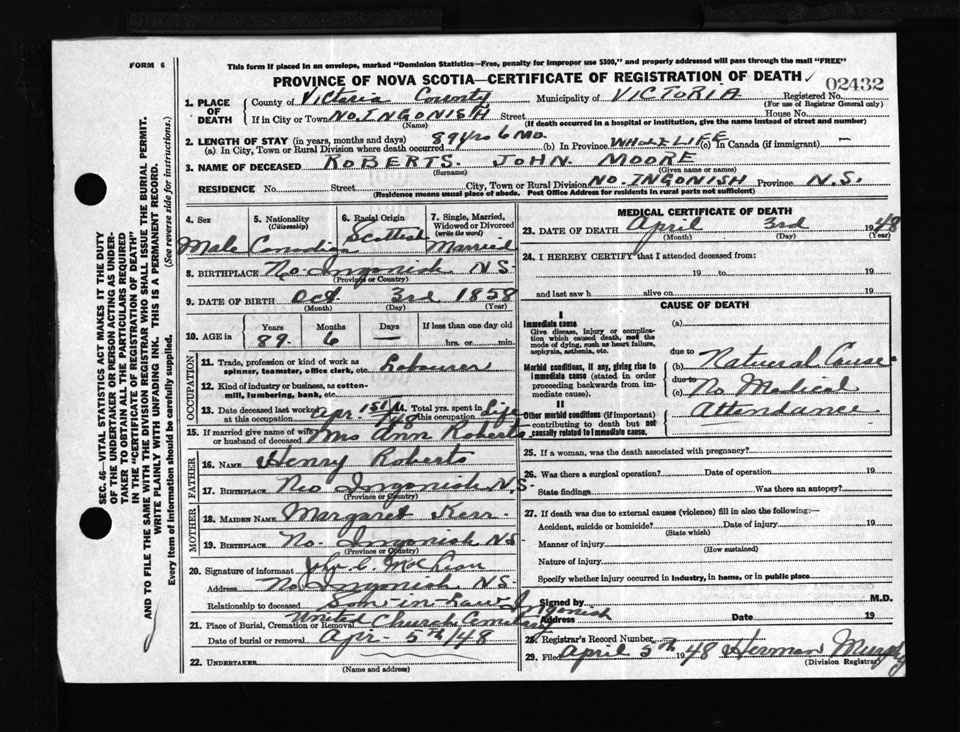 FORM 6
This form if placed in an envelope, marked "Dominion Statistics—Free, penalty for improper use $300," and properly addressed will pass through the mail "FREE"
PROVINCE OF NOVA SCOTIA—CERTIFICATE OF REGISTRATION OF DEATH
02432
1. PLACE OF DEATH
County of Victoria County Municipality of VICTORIA Registered No.
(For use of Registrar General only)
If in City or Town NO. INGONISH Street House No.
(Name) (If death occurred in a hospital or institution, give the name instead of street and number)
2. LENGTH OF STAY (in years, months and days)
(a) In City, Town or Rural Division where death occurred 89 yrs 6 mo. (b) In Province WHOLE LIFE (c) In Canada (if immigrant) —
3. NAME OF DECEASED ROBERTS. JOHN MOORE
(Surname) (Given name or names)
RESIDENCE No. Street City, Town or Rural Division NO. INGONISH Province N.S.
(Residence means usual place of abode. Post Office Address for residents in rural parts not sufficient)
4. Sex Male
5. Nationality (Citizenship) Canadian
6. Racial Origin Scottish
7. Single, Married, Widowed or Divorced (write the word) Married
8. BIRTHPLACE No. Ingonish N.S.
(Province or Country)
9. DATE OF BIRTH Oct. 3rd 1858
(Month) (Day) (Year)
10. AGE in Years 89. Months 6 Days — If less than one day old hrs. or min.
OCCUPATION
11. Trade, profession or kind of work as spinner, teamster, office clerk, etc. Labourer
12. Kind of industry or business, as cotton-mill, lumbering, bank, etc.
13. Date deceased last worked at this occupation Apr 1st/48
14. Total yrs. spent in this occupation Life
15. If married give name of wife or husband of deceased Mrs Ann Roberts
FATHER
16. NAME Henry Roberts
17. BIRTHPLACE No Ingonish N.S.
(Province or Country)
MOTHER
18. MAIDEN NAME Margaret Kerr
19. BIRTHPLACE No. Ingonish N.S.
(Province or Country)
20. Signature of informant
Address No. Ingonish N.S.
Relationship to deceased Son-in-Law
21. Place of Burial, Cremation or Removal United Church Ingonish
Date of burial or removal Apr- 5th/48
22. UNDERTAKER
(Name and address)
MEDICAL CERTIFICATE OF DEATH
23. DATE OF DEATH April 3rd 1948
(Month) (Day) (Year)
24. I HEREBY CERTIFY that I attended deceased from:
19 to 19
and last saw h alive on 19
CAUSE OF DEATH
I
Immediate cause
Give disease, injury or complication which caused death, not the mode of dying, such as heart failure, asphyxia, asthenia, etc.
(a)
due to
Morbid conditions, if any, giving rise to immediate cause (stated in order proceeding backwards from immediate cause).
(b) Natural Cause
due to
(c) No Medical
Attendance
II
Other morbid conditions (if important) contributing to death but not causally related to immediate cause.
25. If a woman, was the death associated with pregnancy?
26. Was there a surgical operation? Date of operation 19
State findings Was there an autopsy?
27. If death was due to external causes (violence) fill in also the following:—
Accident, suicide or homicide? Date of injury 19
(State which)
Manner of injury
(How sustained)
Nature of injury
Specify whether injury occurred in industry, in home, or in public place
Signed by M.D.
Address Date 19
28. Registrar's Record Number
29. Filed April 5th 1948 Herman Murphy
(Division Registrar)
SEC. 46—VITAL STATISTICS ACT MAKES IT THE DUTY
OF THE UNDERTAKER OR PERSON ACTING AS UNDER-
TAKER TO OBTAIN ALL THE PARTICULARS REQUIRED
IN THE "CERTIFICATE OF REGISTRATION OF DEATH"
AND TO FILE THE SAME WITH THE DIVISION REGISTRAR WHO SHALL ISSUE THE BURIAL PERMIT.
WRITE PLAINLY WITH UNFADING INK. THIS IS A PERMANENT RECORD.
Every item of information should be carefully supplied. (See reverse side for instructions.)